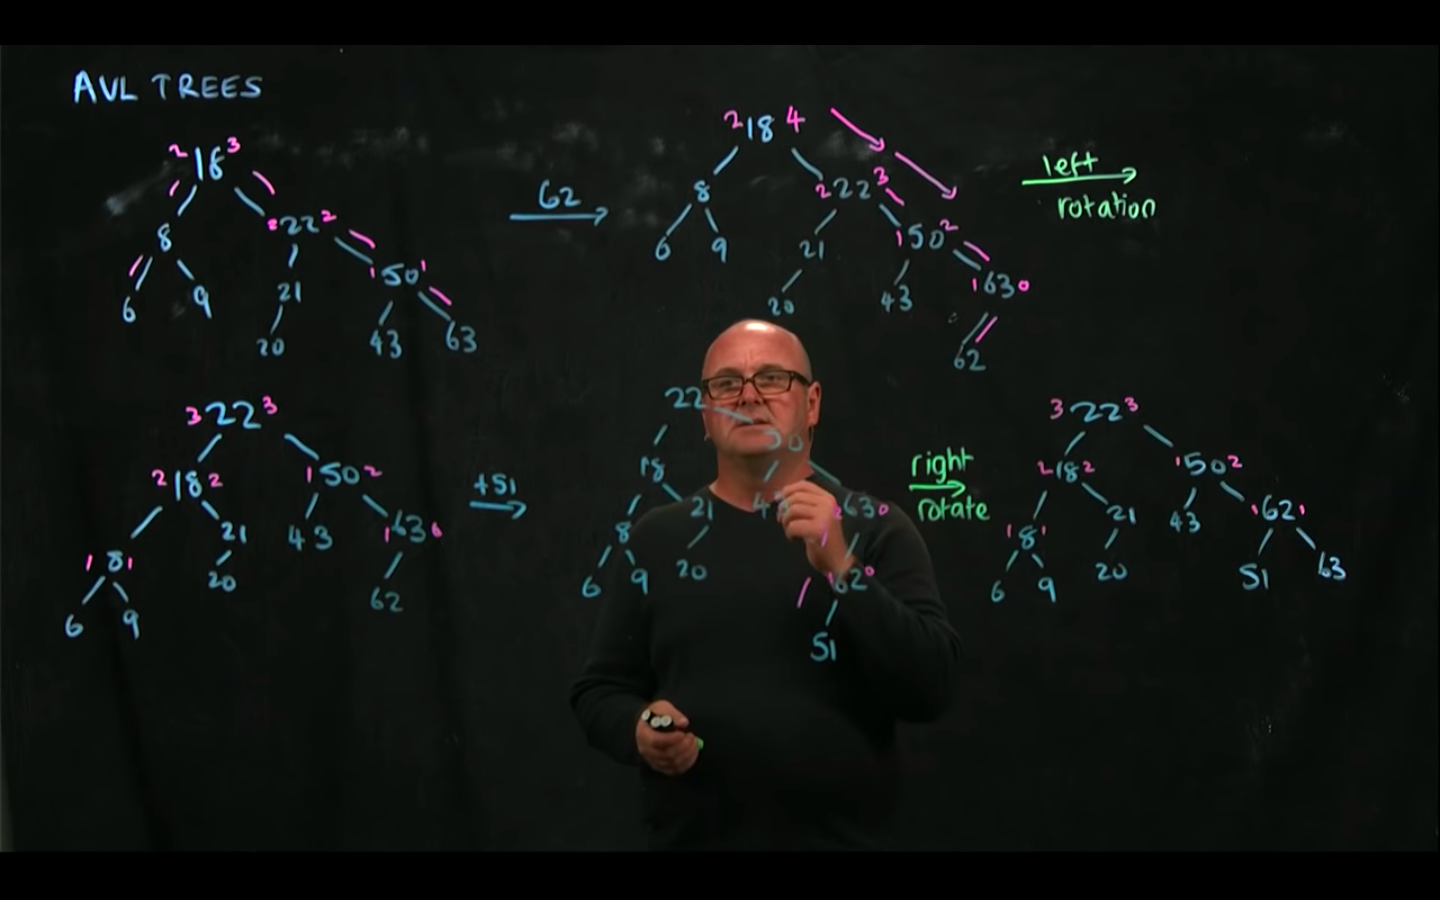 AVL TREES
2 18 3
8
2 22 2
6
9
21
1 50 1
20
43
63
62
2 18 4
8
2 22 3
6
9
21
1 50 2
20
43
1 63 0
62
left
rotation
3 22 3
2 18 2
1 50 2
1 8 1
21
43
1 63 0
6
9
20
62
+51
22
18
50
8
21
43
2 63 0
6
9
20
1 62 0
51
right
rotate
3 22 3
2 18 2
1 50 2
1 8 1
21
43
1 62 1
6
9
20
51
63